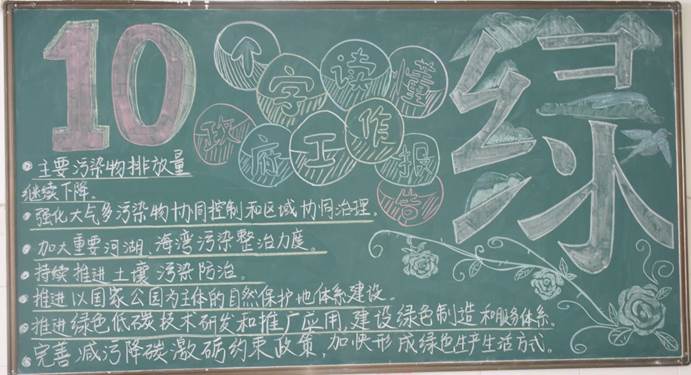 10
个字读懂
政府工作报告
绿
主要污染物排放量
继续下降.
强化大气多污染物协同控制和区域协同治理.
加大重要河湖、海湾污染整治力度。
持续推进土壤污染防治。
推进以国家公园为主体的自然保护地体系建设.
推进绿色低碳技术研发和推广应用,建设绿色制造和服务体系.
完善减污降碳激励约束政策,加快形成绿色生产生活方式.